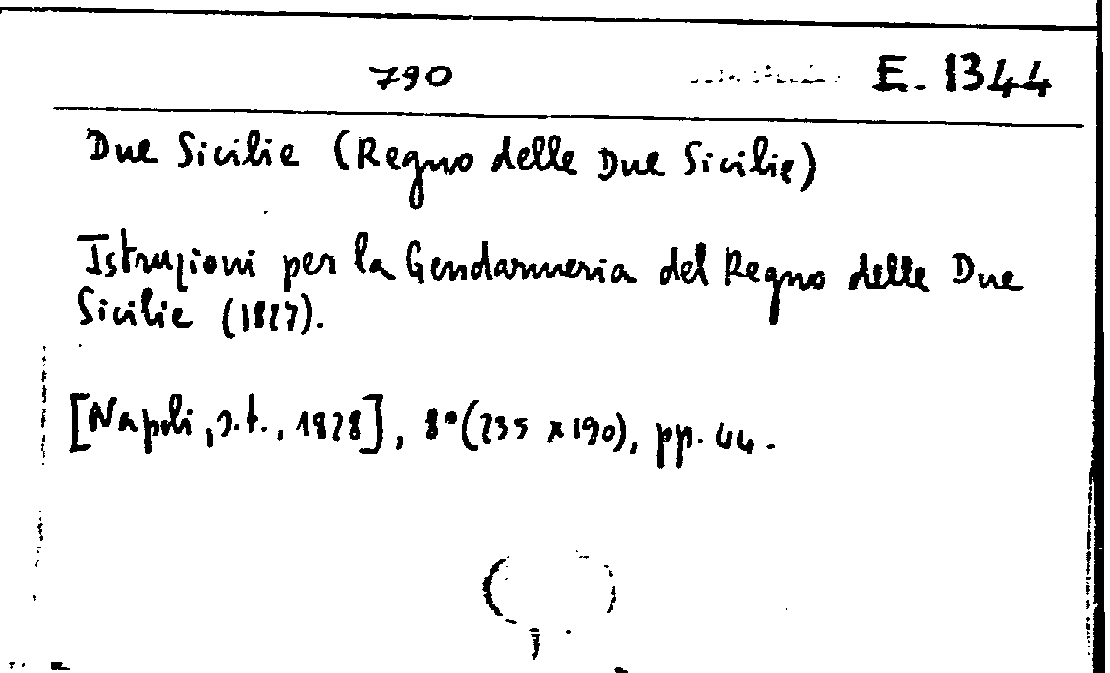 790 E. 1344
Due Sicilie (Regno delle Due Sicilie)
Istruzioni per la Gendarmeria del Regno delle Due
Sicilie (1827).
[Napoli, s.t., 1828], 8° (235 x 190), pp. 44.